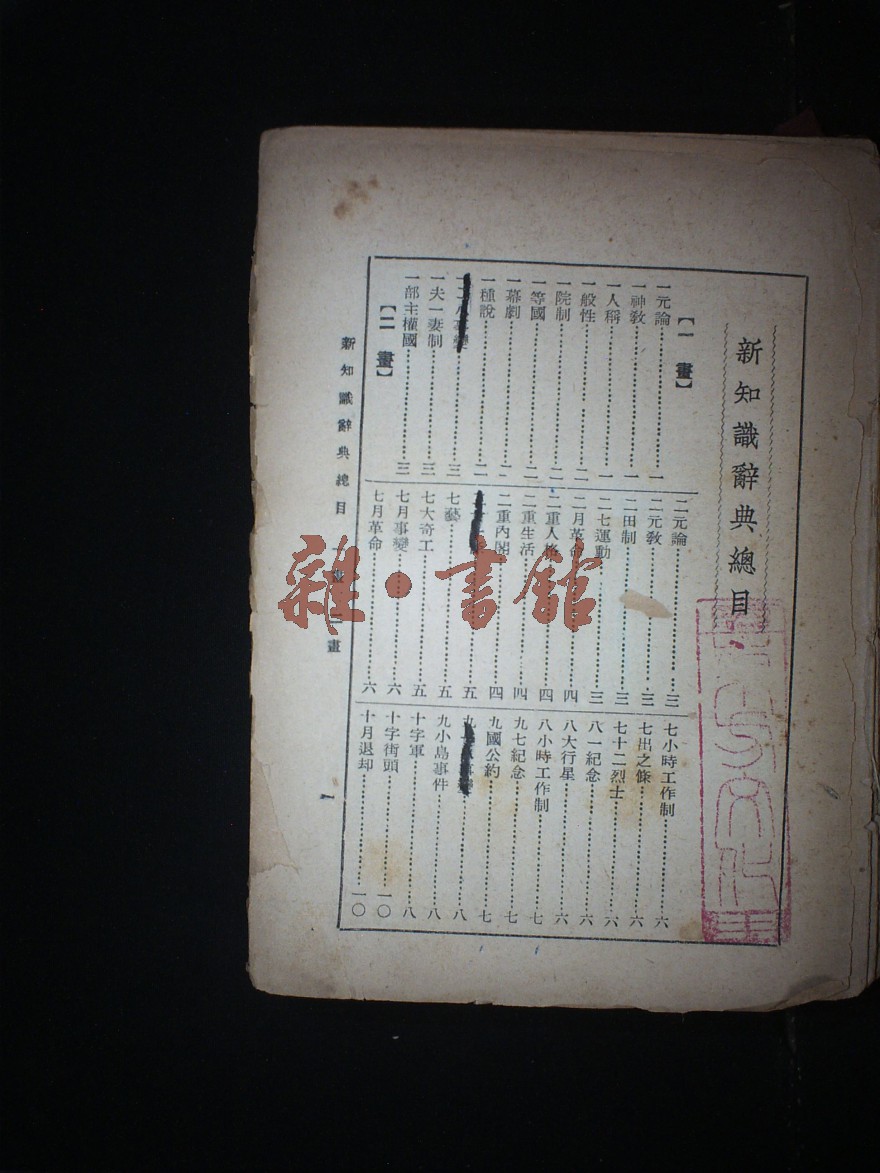 新知識辭典總目
【一畫】
一元論……一
一神教……一
一人稱……一
一般性……一
一院制……二
一等國……二
一幕劇……二
一種說……二
一二八事變……三
一夫一妻制……三
一部主權國……三
【二畫】
二元論……三
二元教……三
二田制……三
二七運動……三
二月革命……四
二重人格……四
二重生活……四
二重內閣……四
七藝……五
七大奇工……五
七月事變……六
七月革命……六
七小時工作制……六
七出之條……六
七十二烈士……六
八一紀念……六
八大行星……六
八小時工作制……七
九七紀念……七
九國公約……七
九 事變……八
九小島事件……八
十字軍……八
十字街頭……一〇
十月退却……一〇
新知識辭典總目 一畫 二畫
1
雜·書館